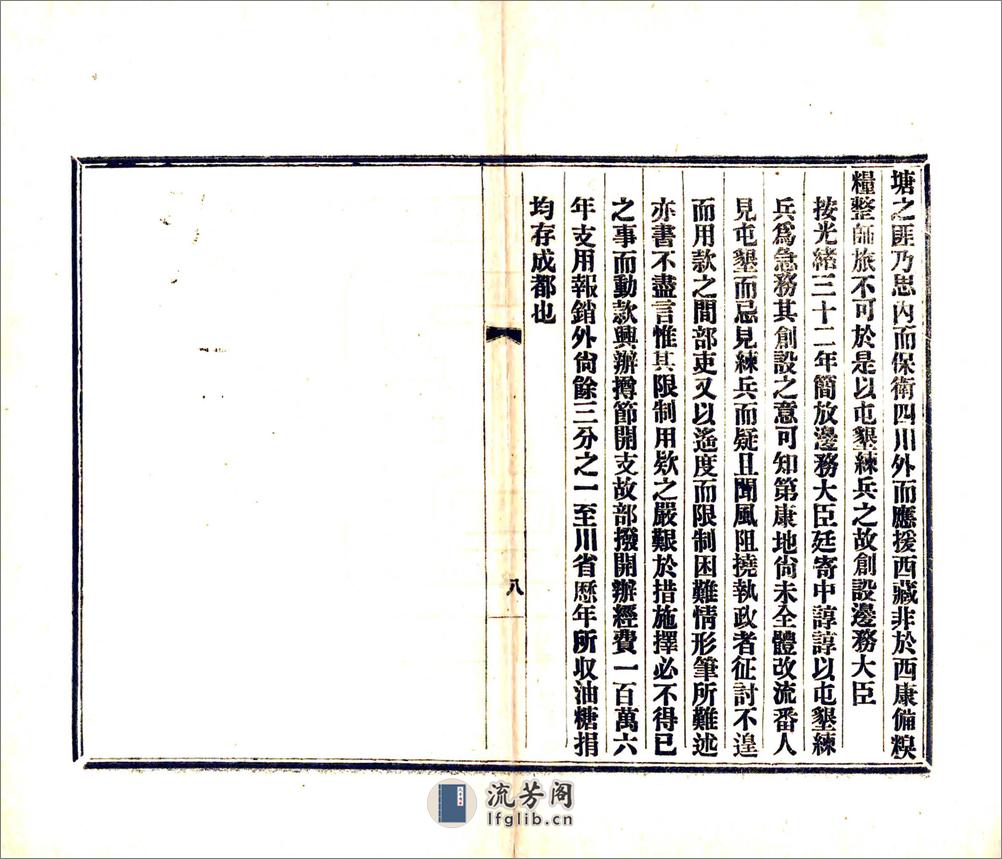 塘之匪乃思內而保衛四川外而應援西藏非於西康備糗
糧整師旅不可於是以屯墾練兵之故創設邊務大臣
按光緒三十二年簡放邊務大臣廷寄中諄諄以屯墾練
兵爲急務其創設之意可知第康地尙未全體改流番人
見屯墾而忌見練兵而疑且聞風阻撓執政者征討不遑
而用款之間部吏又以遙度而限制困難情形筆所難述
亦書不盡言惟其限制用欵之嚴艱於措施擇必不得已
之事而動款興辦撙節開支故部撥開辦經費一百萬六
年支用報銷外尙餘三分之一至川省歷年所収油糖捐
均存成都也
八
流芳阁
lfglib.cn